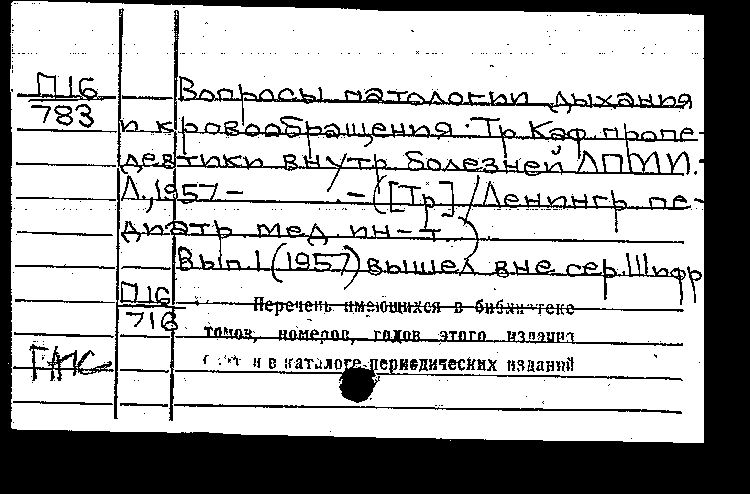 П16
783
Вопросы патологии дыхания
и кровообращения. Тр. Каф. пропе-
девтики внутр. болезней ЛПМИ.-
Л., 1957- . - ([Тр.] / Ленингр. пе-
диатр. мед. ин-т.)
Вып. 1 (1957) вышел вне сер. Шифр
П16
716
Перечень имеющихся в библиотеке
томов, номеров, годов этого издания
и в каталоге периодических изданий